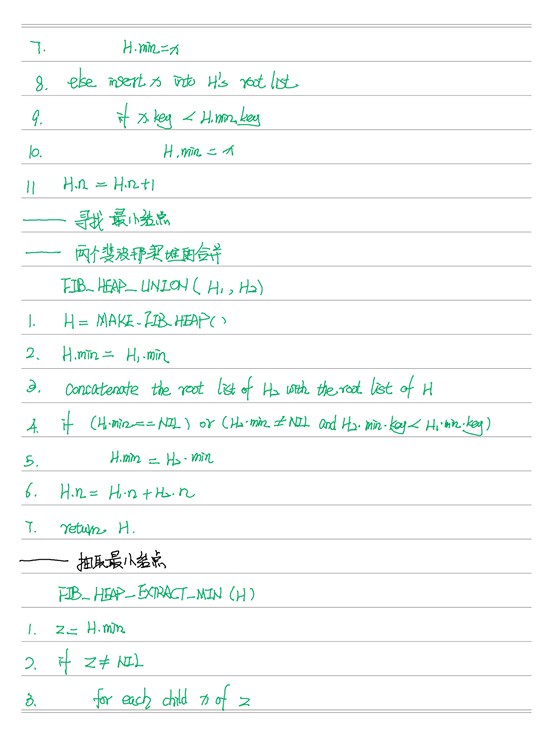 7. H.min=x
8. else insert x into H's root list
9. if x.key < H.min.key
10. H.min = x
11 H.n = H.n+1
—— 寻找最小结点
—— 两个斐波那契堆的合并
FIB_HEAP_UNION(H₁,H₂)
1. H = MAKE-FIB_HEAP()
2. H.min = H₁.min
3. concatenate the root list of H₂ with the root list of H
4. if (H₁.min==NIL) or (H₂.min≠NIL and H₂.min.key<H₁.min.key)
5. H.min = H₂.min
6. H.n = H₁.n+H₂.n
7. return H.
—— 抽取最小结点
FIB_HEAP_EXTRACT_MIN(H)
1. z = H.min
2. if z≠NIL
3. for each child x of z